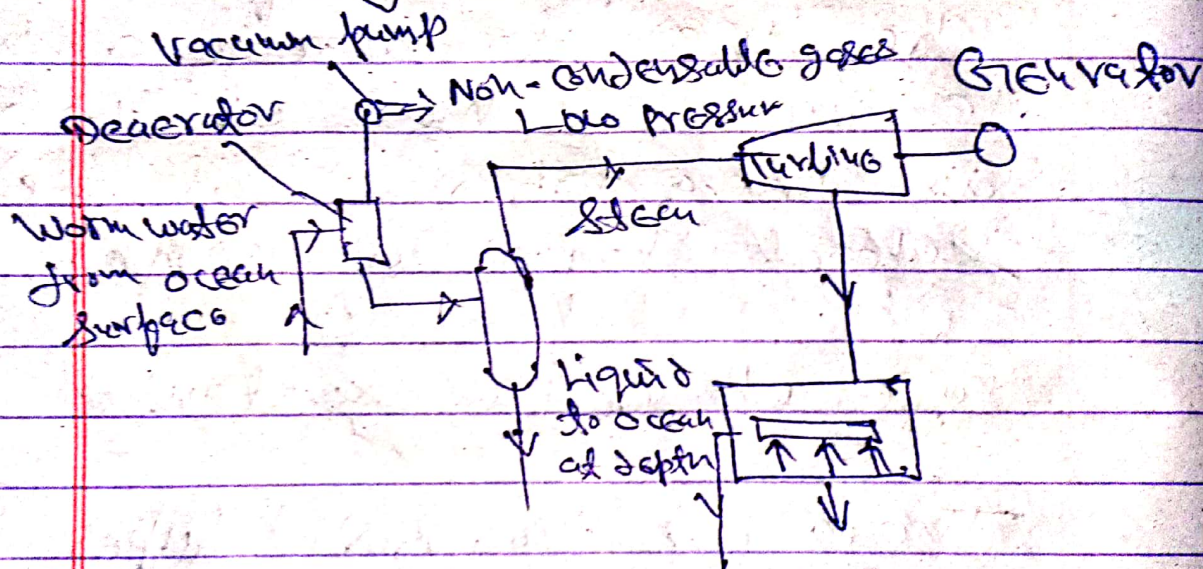 Vacuum pump
Non-Condensable gases
Generator
Deaerator
Low Pressur
Turbine
Steam
Worm water
from ocean
surface
Liquid
to ocean
at depth